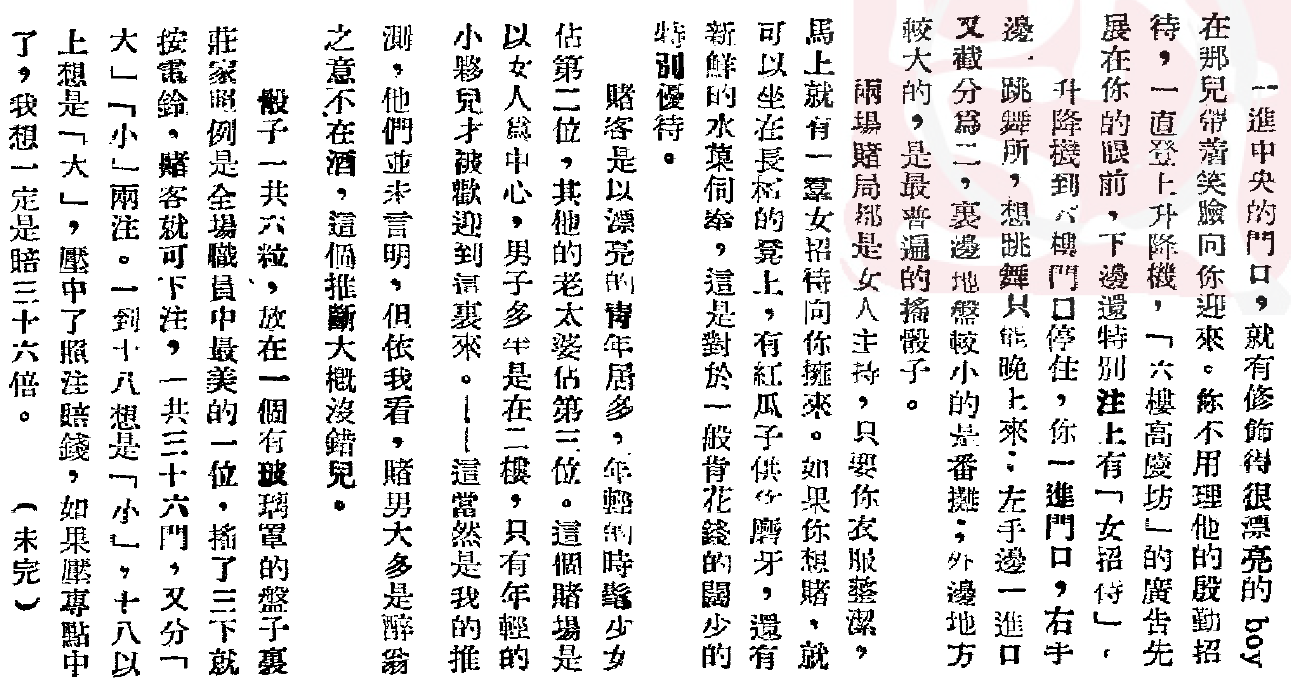 一進中央的門口，就有修飾得很漂亮的boy
在那兒帶着笑臉向你迎來。你不用理他的殷勤招
待，一直登上升降機，「六樓高慶坊」的廣告先
展在你的眼前，下邊還特別注上有「女招待」，
升降機到六樓門口停住，你一進門口，右手
邊，跳舞所，想跳舞只能晚上來；左手邊一進口
又截分為二，裏邊地盤較小的是番攤；外邊地方
較大的，是最普遍的搖骰子。
兩場賭局都是女人主持，只要你衣服整潔，
馬上就有一羣女招待向你擁來。如果你想賭，就
可以坐在長檯的凳上，有紅瓜子供你磨牙，還有
新鮮的水菓伺奉，這是對於一般肯花錢的闊少的
特別優待。
賭客是以漂亮的青年居多，年輕的時髦少女
佔第二位，其他的老太婆佔第三位。這個賭場是
以女人爲中心，男子多半是在二樓，只有年輕的
小夥兒才被歡迎到這裏來。——這當然是我的推
測，他們並未言明，但依我看，賭男大多是醉翁
之意不在酒，這個推斷大概沒錯兒。
骰子一共六粒，放在一個有玻璃罩的盤子裏
莊家照例是全場職員中最美的一位，搖了三下就
按電鈴，賭客就可下注，一共三十六門，又分「
大」「小」兩注。一到十八想是「小」，十八以
上想是「大」，壓中了照注賠錢，如果壓專點中
了，我想一定是賠三十六倍。　（未完）